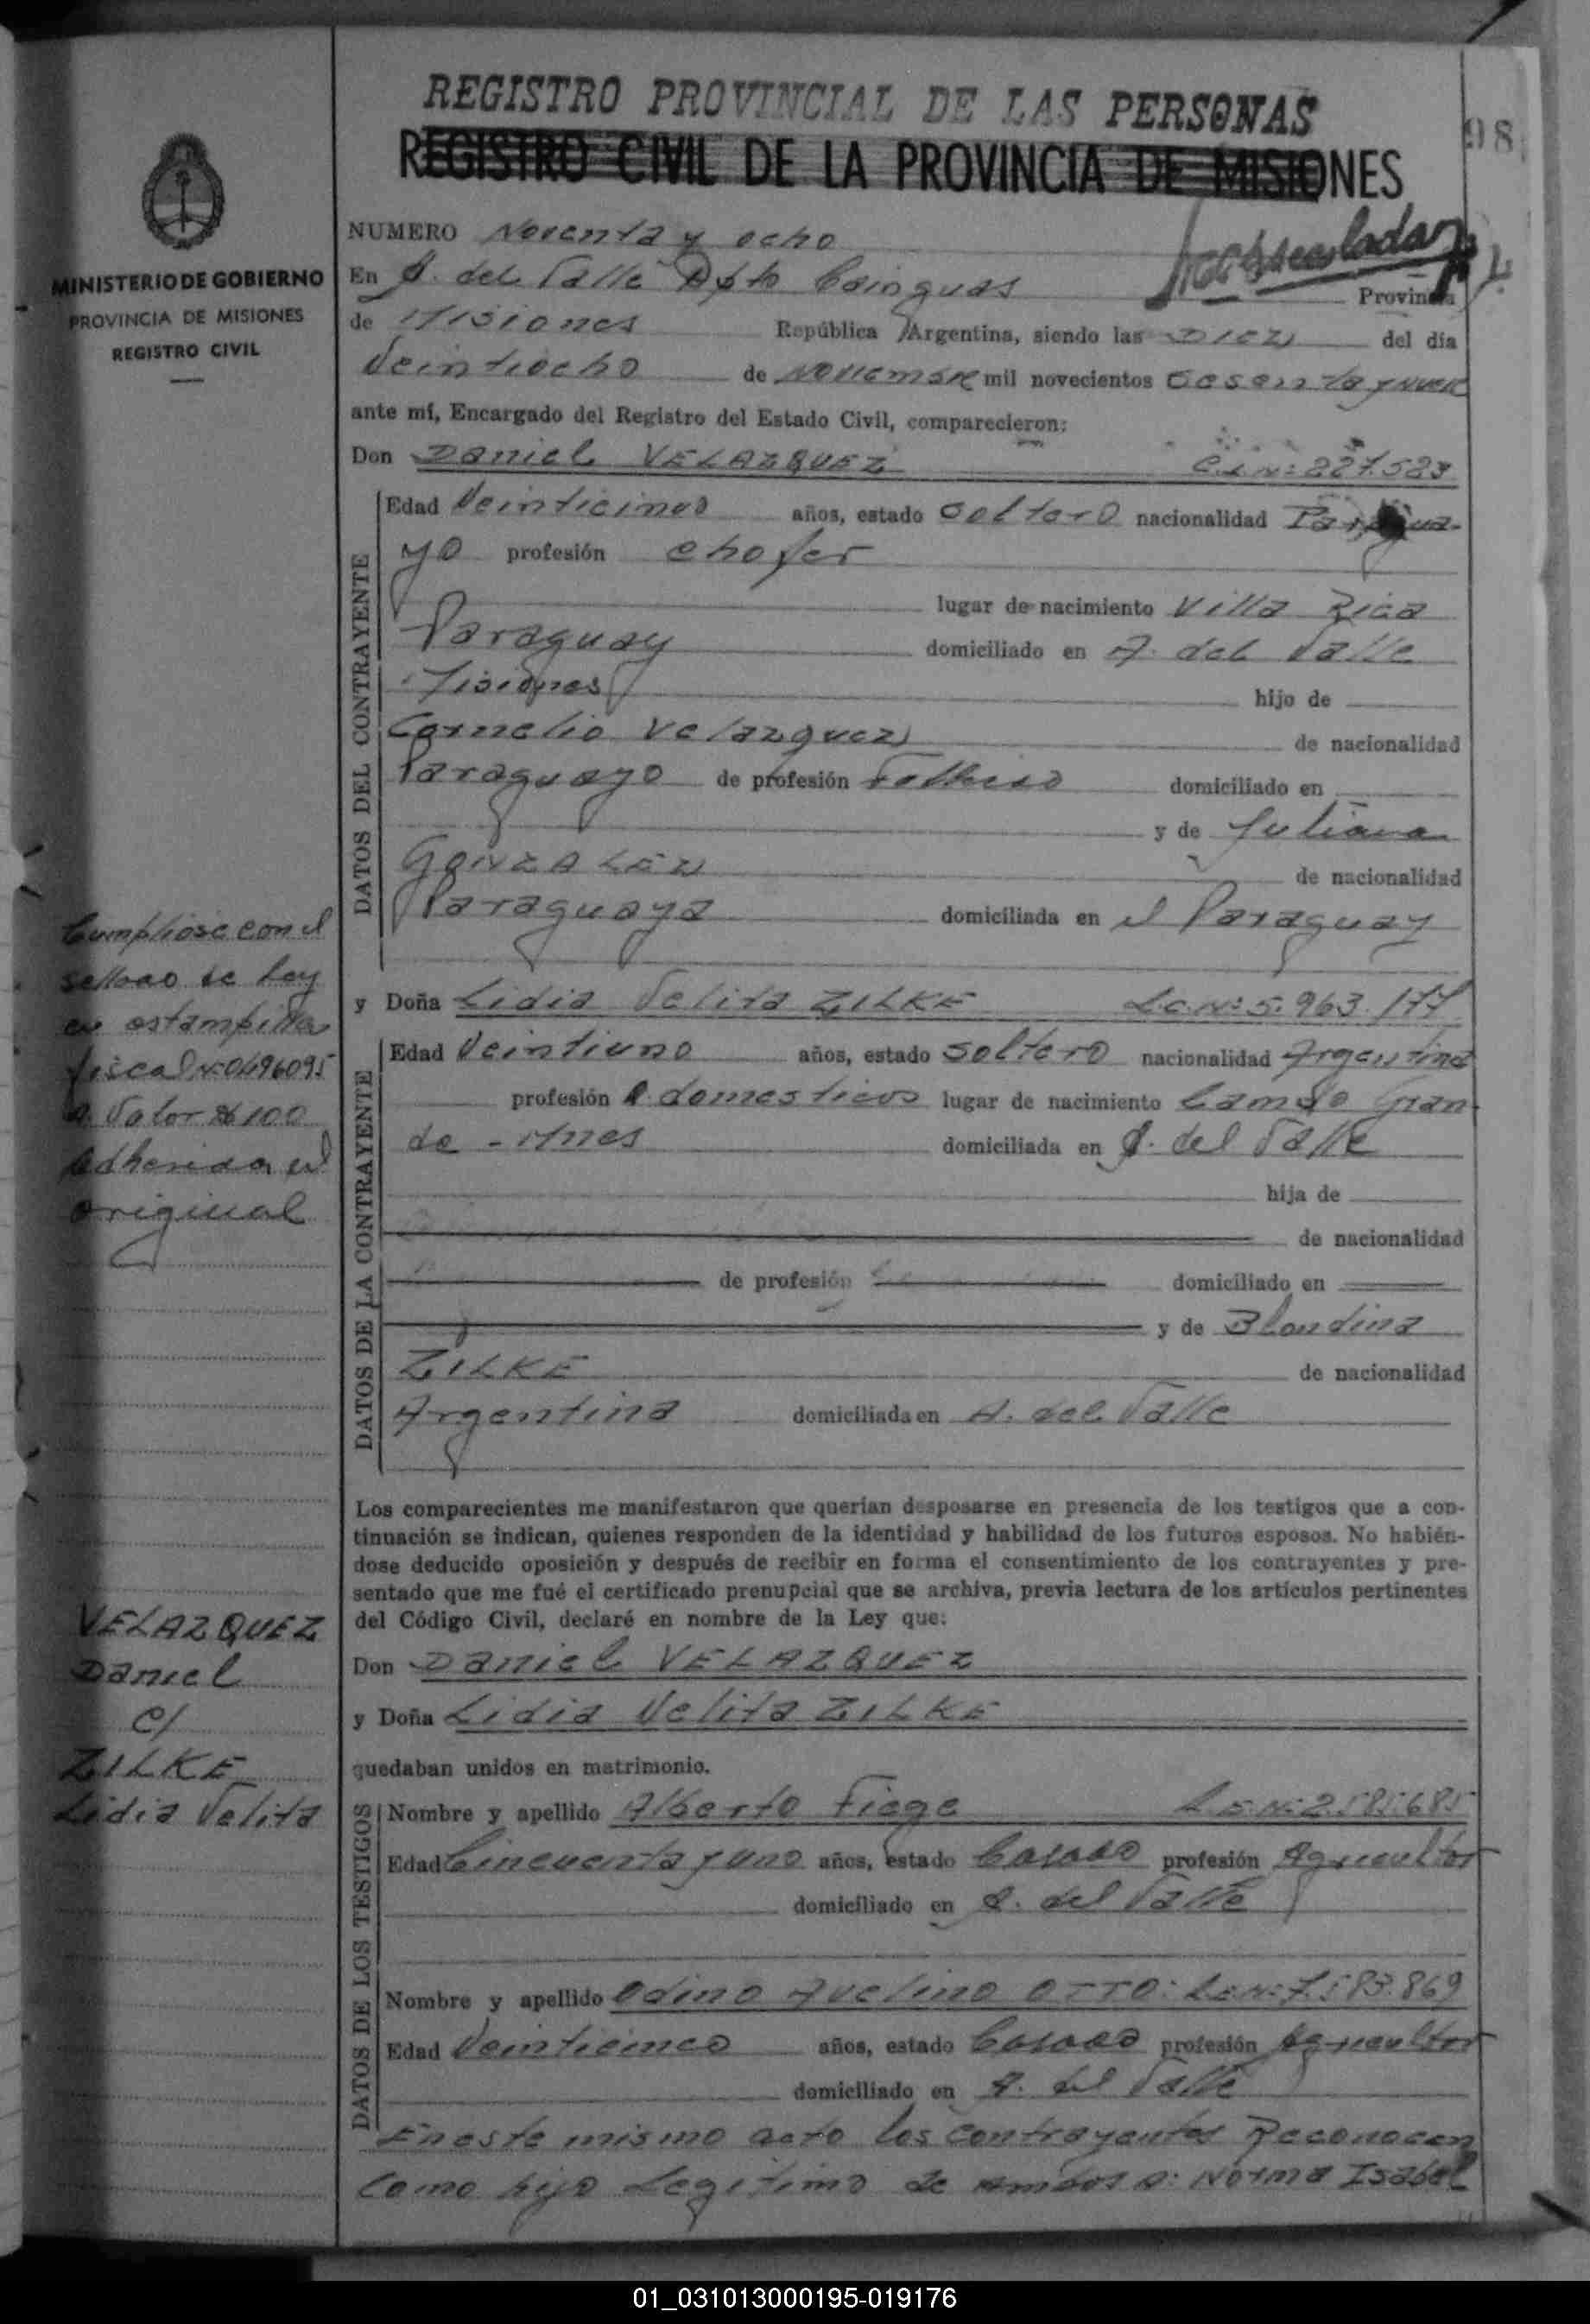 REGISTRO PROVINCIAL DE LAS PERSONAS
REGISTRO CIVIL DE LA PROVINCIA DE MISIONES
98
MINISTERIO DE GOBIERNO
PROVINCIA DE MISIONES
REGISTRO CIVIL
NUMERO Noventa y ocho
En A. del Valle Dpto Cainguas Provincia
de Misiones República Argentina, siendo las DIEZ del día
Veintiocho de Noviembre mil novecientos Sesenta y nueve
ante mí, Encargado del Registro del Estado Civil, comparecieron:
Don Daniel VELAZQUEZ C.I.Nº: 227.523
DATOS DEL CONTRAYENTE
Edad Veinticinco años, estado Soltero nacionalidad Paragua-
yo profesión chofer
lugar de nacimiento Villa Rica
Paraguay domiciliado en A. del Valle
Misiones hijo de
Cornelio Velazquez de nacionalidad
Paraguayo de profesión domiciliado en
y de Juliana
GONZALEZ de nacionalidad
Paraguaya domiciliada en el Paraguay
y Doña Lidia Velita ZILKE L.C.Nº: 5.963.177
DATOS DE LA CONTRAYENTE
Edad Veintiuno años, estado Soltero nacionalidad Argentina
profesión Q. domesticos lugar de nacimiento Campo Gran-
de - Mnes domiciliada en A. del Valle
hija de
de nacionalidad
de profesión domiciliado en
y de Blondina
ZILKE de nacionalidad
Argentina domiciliada en A. del Valle
Cumpliose con el
sellado de Ley
en estampilla
fiscal Nº 0496095
Valor $ 100
Adherida en el
original
Los comparecientes me manifestaron que querían desposarse en presencia de los testigos que a con-
tinuación se indican, quienes responden de la identidad y habilidad de los futuros esposos. No habién-
dose deducido oposición y después de recibir en forma el consentimiento de los contrayentes y pre-
sentado que me fué el certificado prenupcial que se archiva, previa lectura de los artículos pertinentes
del Código Civil, declaré en nombre de la Ley que:
Don Daniel VELAZQUEZ
y Doña Lidia Velita ZILKE
quedaban unidos en matrimonio.
VELAZQUEZ
Daniel
c/
ZILKE
Lidia Velita
DATOS DE LOS TESTIGOS
Nombre y apellido Alberto Fiege L.E.Nº: 2.585.685
Edad Cincuenta y uno años, estado Casado profesión Agricultor
domiciliado en A. del Valle
Nombre y apellido Odino Avelino OTTO: L.E.Nº: 7.583.869
Edad Veinticinco años, estado Casado profesión Agricultor
domiciliado en A. del Valle
En este mismo acto los contrayentes Reconocen
Como hijo Legitimo de ambos a: Norma Isabel
01_031013000195-019176